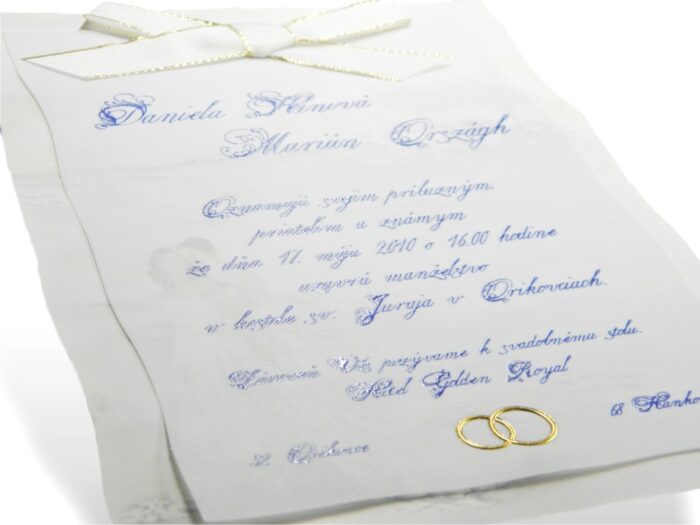 Daniela Hinová
Marián Országh
Oznamujú svojim príbuzným
priateľom a známym
že dňa 17. mája 2010 o 16.00 hodine
uzavrú manželstvo
v kostole sv. Juraja v Orikovciach.
Zároveň Vás pozývame k svadobnému stolu.
Hotel Golden Royal
68 Hanko
22 Orikovce